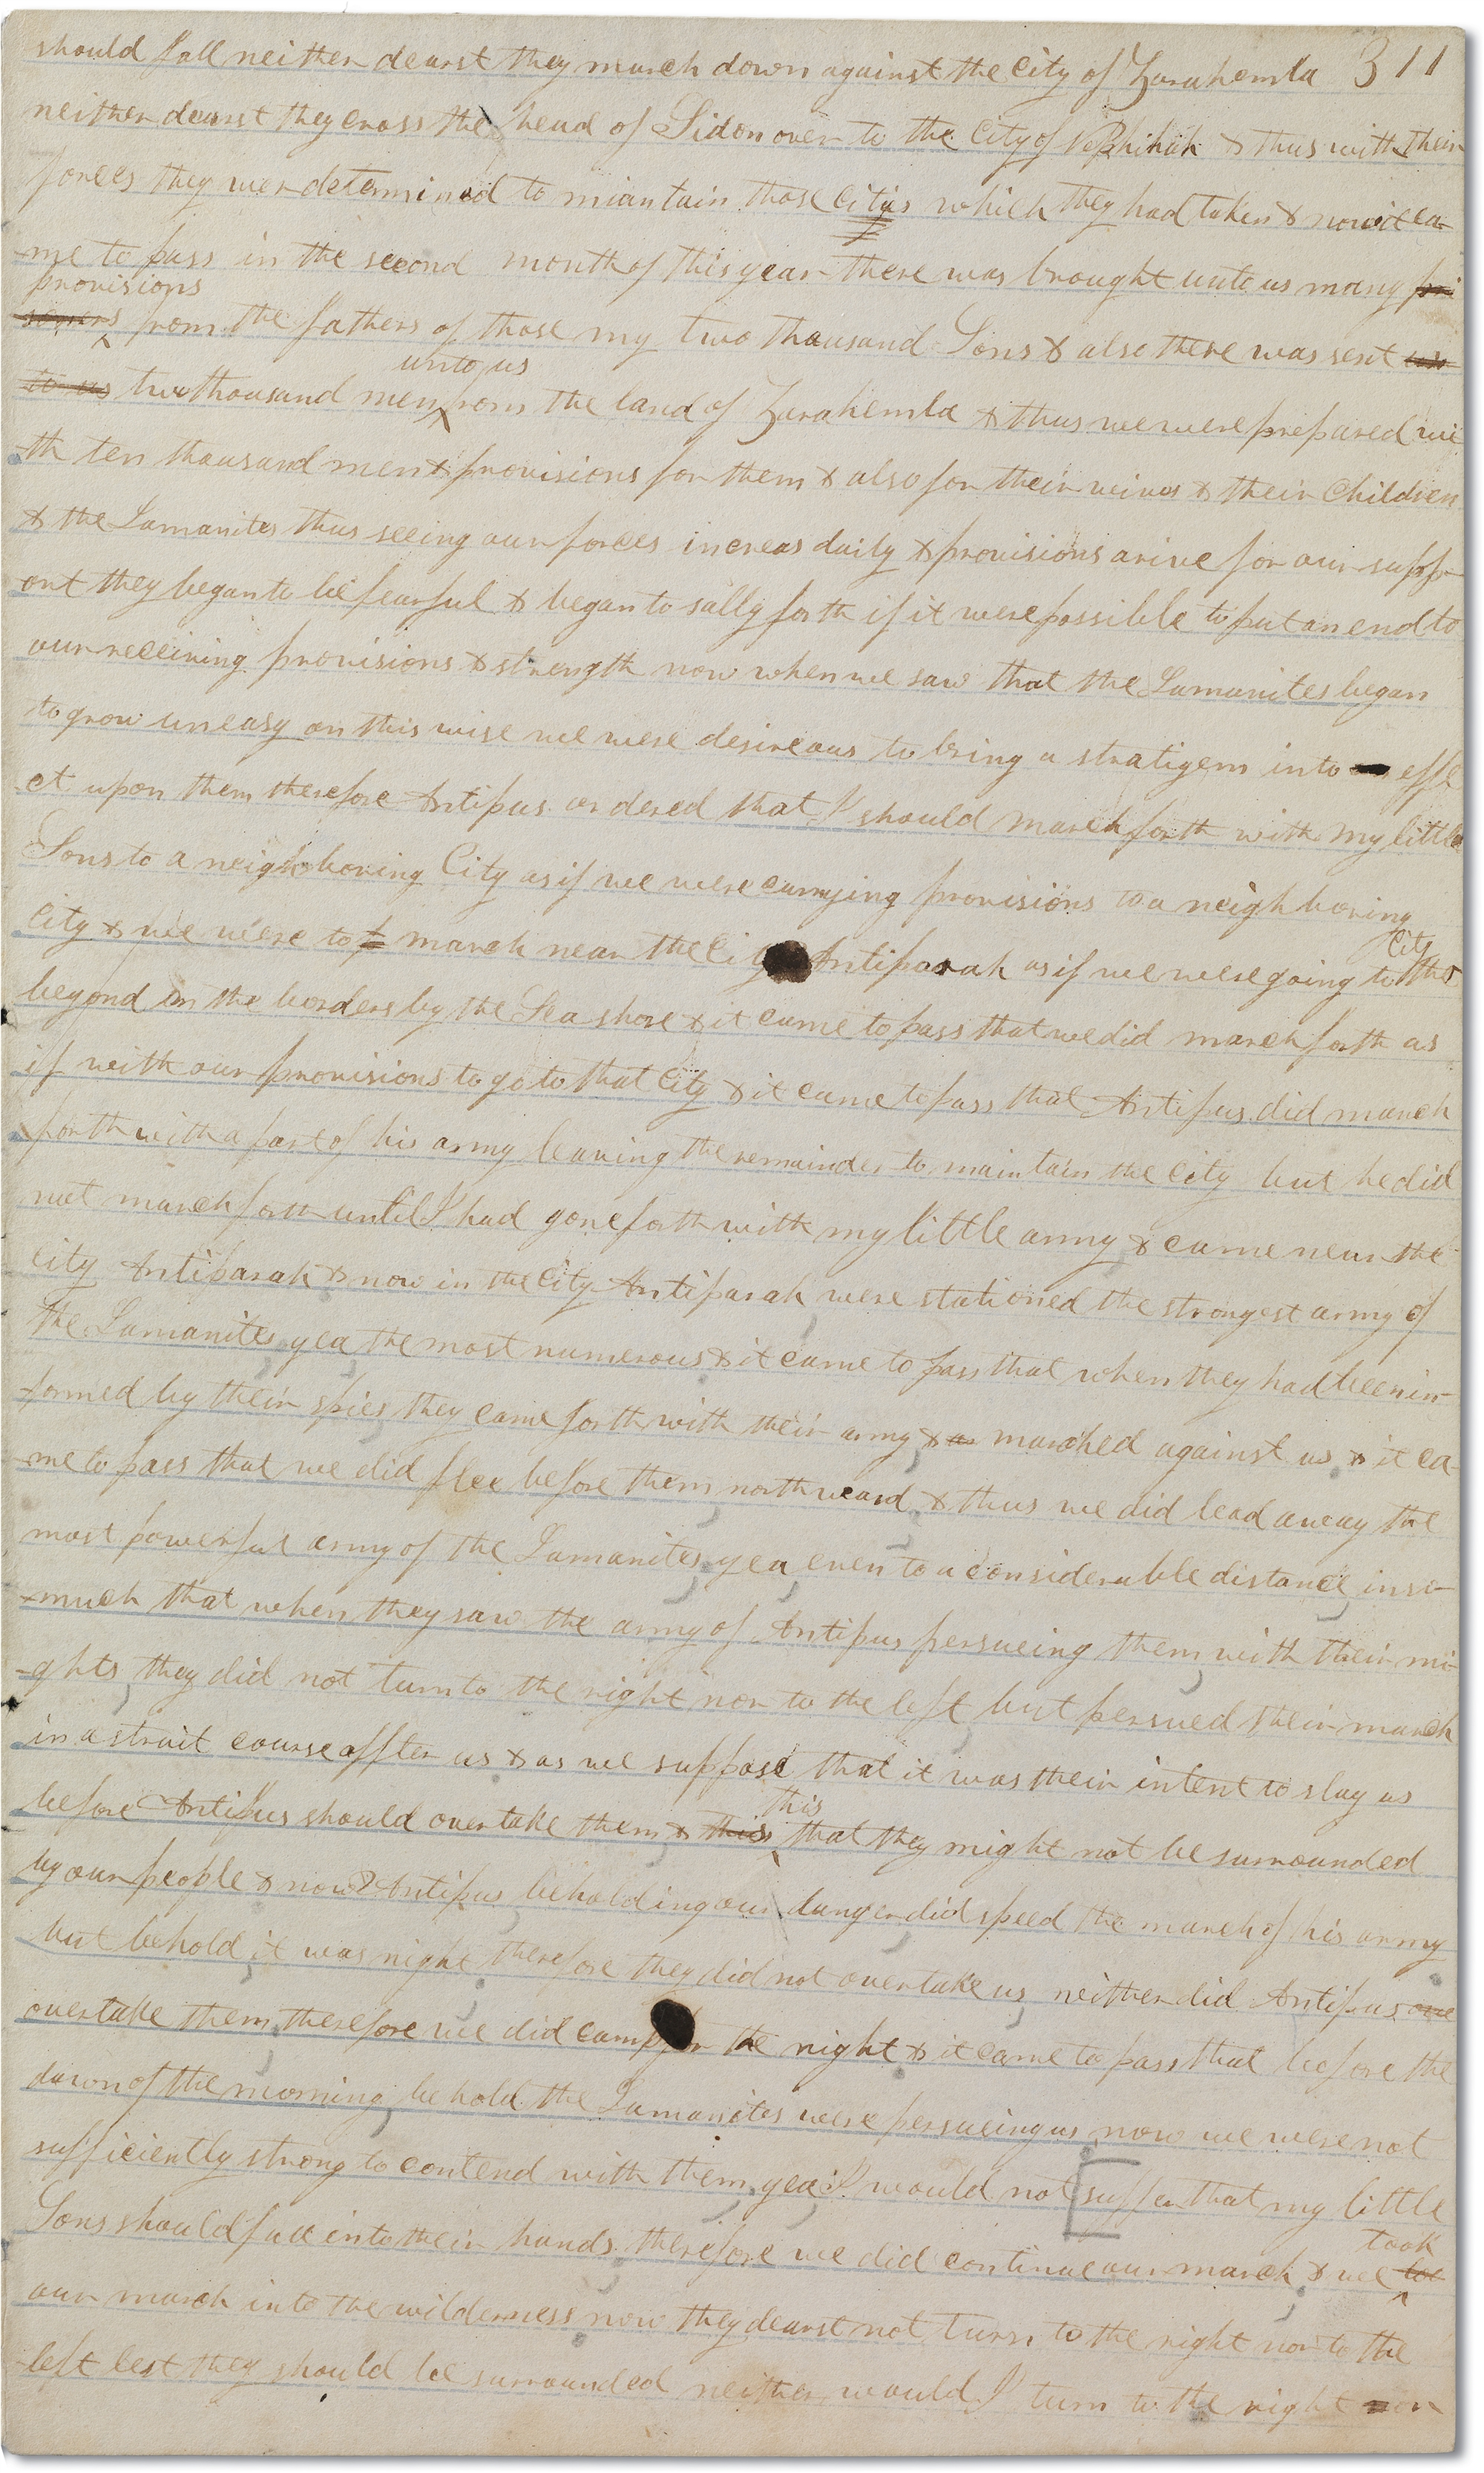 should fall neither dearst they march down against the City of Zarahemla 311
neither dearst they cross the head of Sidon over to the City of Nephihah & thus with their
forces they wer determined to miantain those Cities which they had taken & now it ca-
-me to pass in the second month of this year there was brought unto us many pri
provisions
soners from the fathers of those my two thousand Sons & also there was sent un
unto us
to us two thousand men from the land of Zarahemla & thus we were prepared wi
th ten thousand men & provisions for them & also for their wives & their Children
& the Lamanites thus seeing our forces increas daily & provisions arive for our supp-
ort they began to be fearful & began to sally forth if it were possible to put an end to
our receiving provisions & strength now when we saw that the Lamanites began
to grow uneasy on this wise we were desireous to bring a stratigem into effe
ct upon them therefore Antipus ordered that I should march forth with my little
Sons to a neighboring City as if we were carrying provisions to a neighboring
City
City & we were to march near the City Antiparah as if we were going to the
beyond in the borders by the Sea shore & it came to pass that we did march forth as
if with our provisions to go to that City & it came to pass that Antipus did march
forth with a part of his army leaving the remainder to maintain the City but he did
not march forth until I had gone forth with my little army & came near the
City Antiparah & now in the City Antiparah were stationed the strongest army of
the Lamanites yea the most numerous & it came to pass that when they had been in-
-formed by their spies they came forth with their army & marched against us & it ca-
-me to pass that we did flee before them northward & thus we did lead away the
most powerful army of the Lamanites, yea, even to a considerable distance, inso-
-much that when they saw the army of Antipus persueing them, with their mi-
-ghts, they did not turn to the right nor to the left but persued their march
in a strait course affter us & as we suppose that it was their intent to slay us
this
before Antipus should overtake them & this that they might not be surrounded
by our people & now Antipus beholding our danger did speed the march of his army
but behold, it was night, therefore they did not overtake us, neither did Antipus ove
overtake them, therefore we did camp for the night & it came to pass that before the
dawn of the morning, behold the Lamanites were persueing us now we were not
sufficiently strong to contend with them, yea, I would not suffer that my little
Sons should fall into their hands, therefore we did continue our march, & we too
took
our march into the wilderness, now they dearst not turn to the right nor to the
left lest they should be surrounded neither would I turn to the right nor